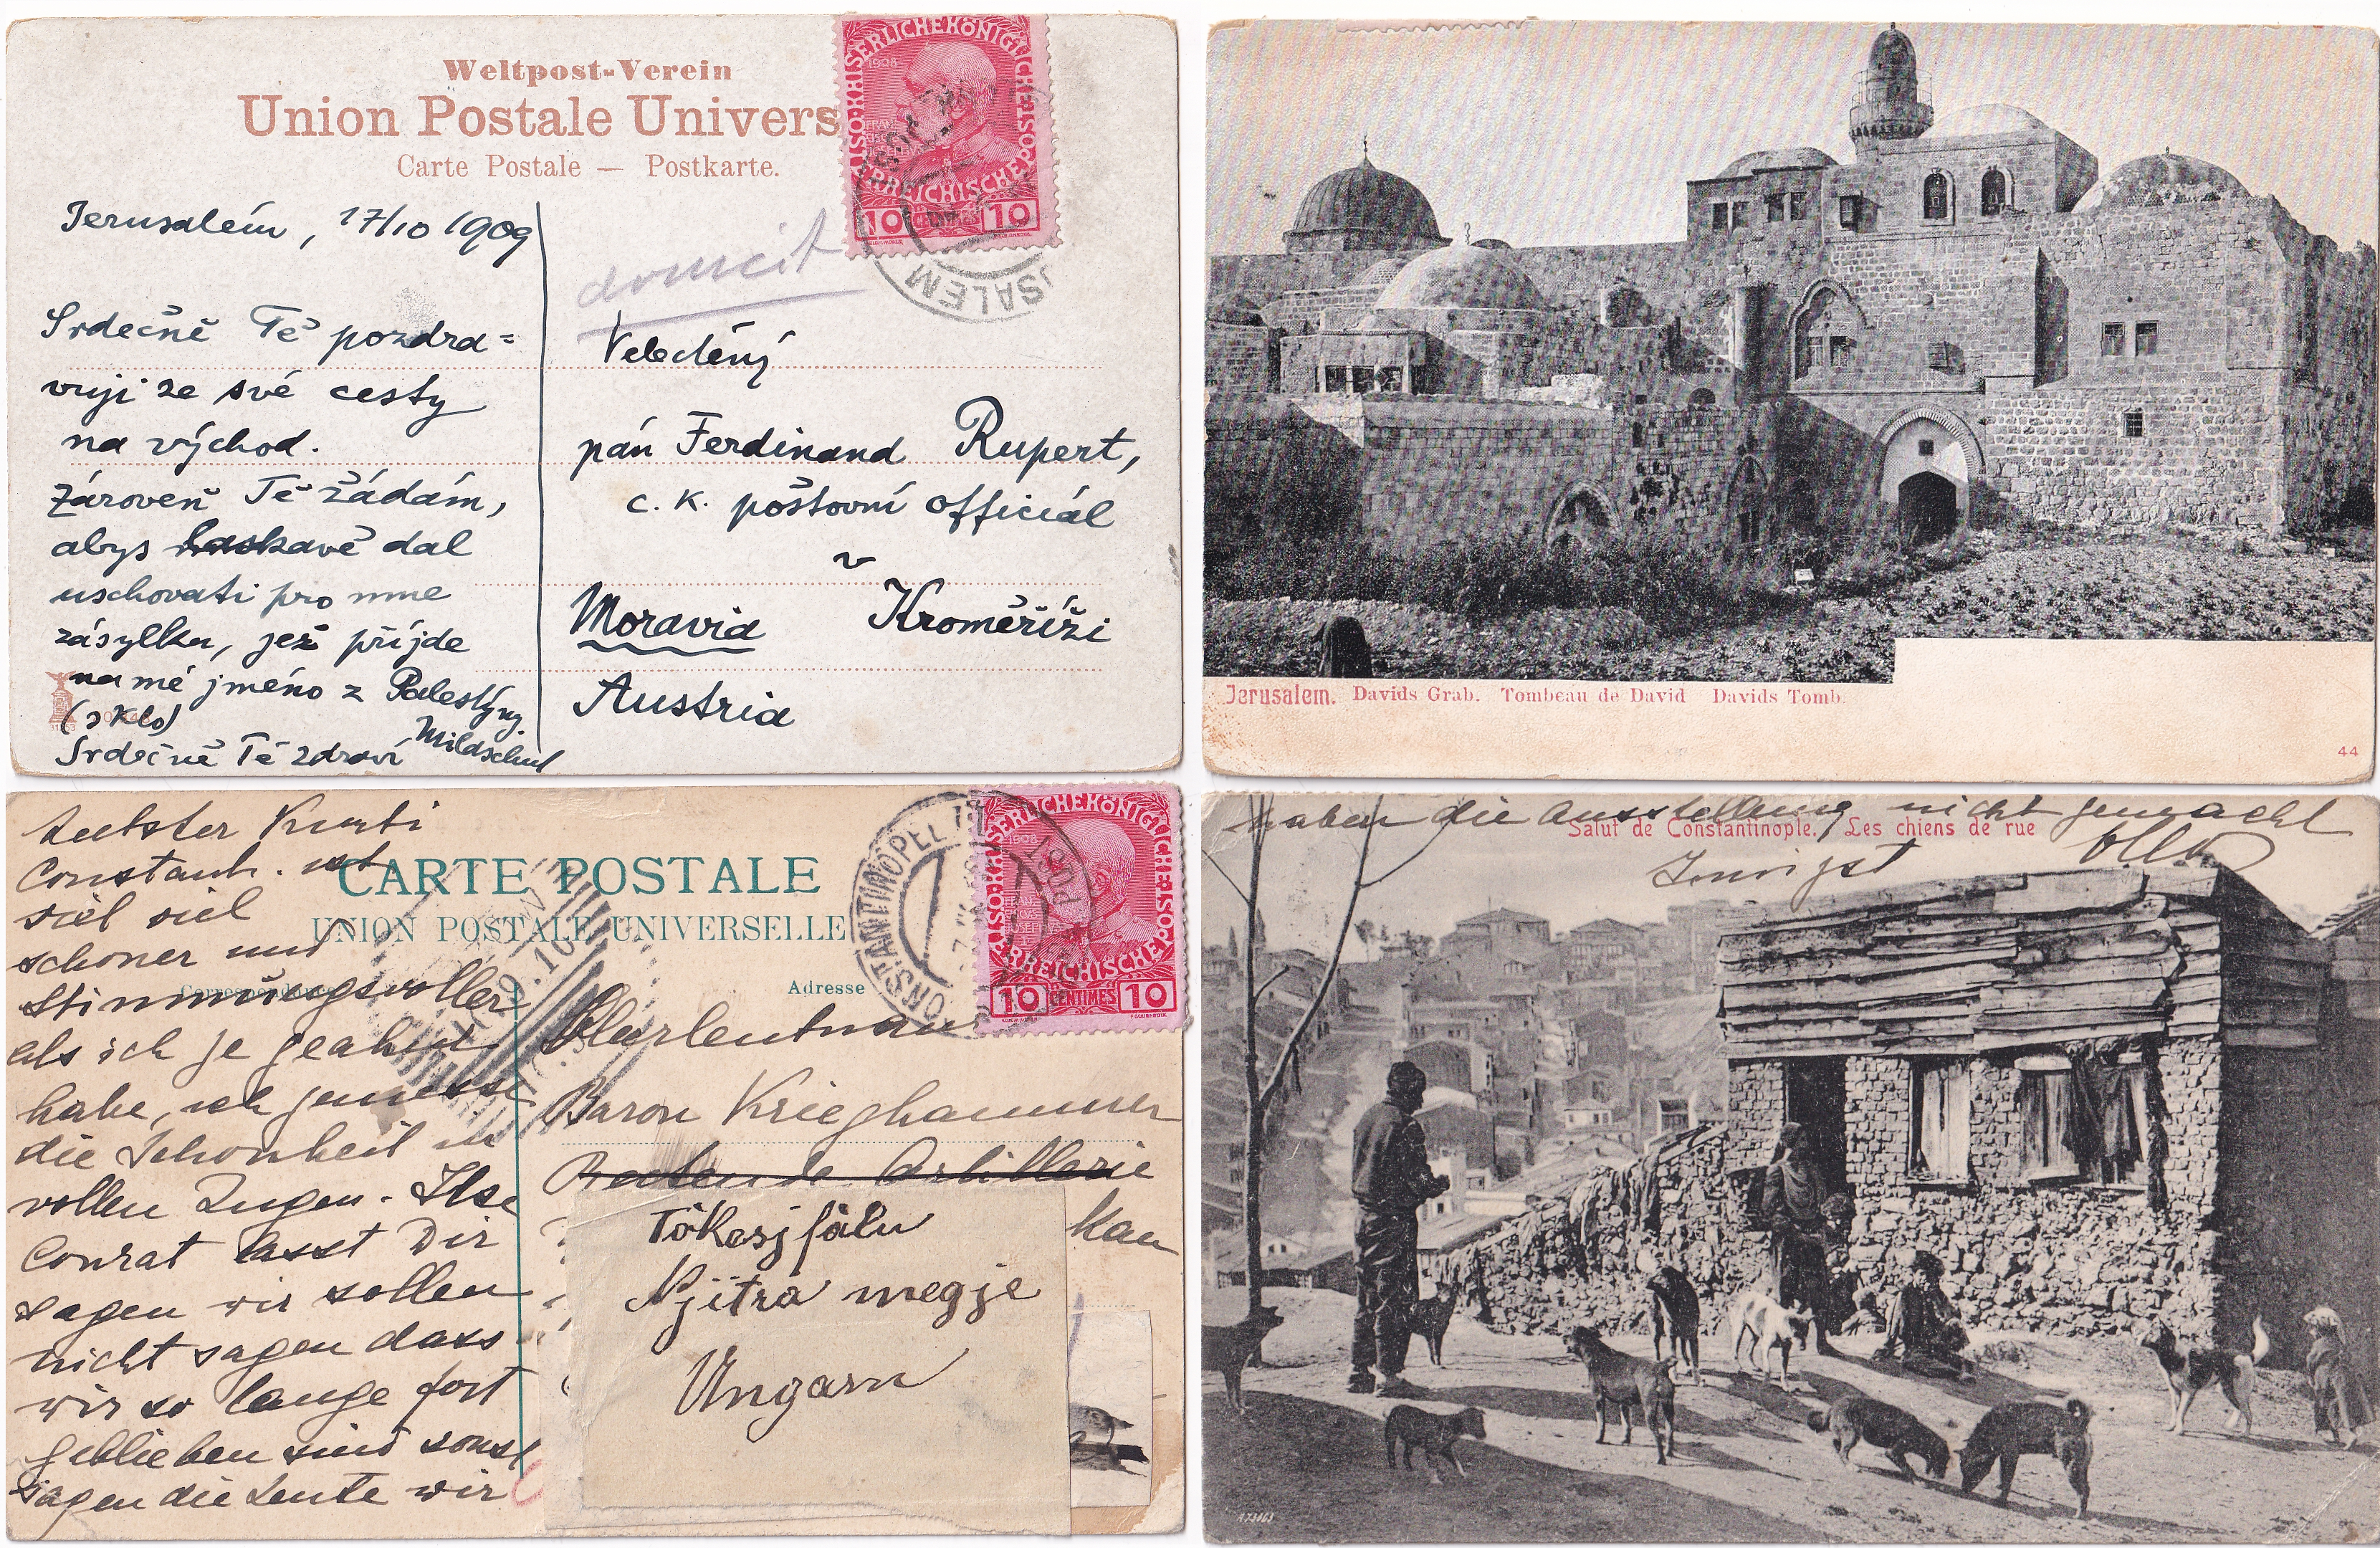 Weltpost-Verein
Union Postale Univers
Carte Postale — Postkarte.
KAISERLICHE KÖNIGLICHE ÖSTERREICHISCHE
1908
10 10
SALEM
domicit
Jerusalém, 17/10 1909
Srdečně Tě pozdra=
vuji ze své cesty
na východ.
Zároveň Tě žádám,
abys laskavě dal
uschovati pro mne
zásylku, jež přijde
na mé jméno z Palestýny
(sklo)
Srdečně Tě zdraví
Velectěný
pán Ferdinand Rupert,
c. k. poštovní officiál
v
Moravia Kroměříži
Austria
Jerusalem. Davids Grab. Tombeau de David Davids Tomb.
44
CARTE POSTALE
UNION POSTALE UNIVERSELLE
Correspondance
Adresse
CONSTANTINOPEL
KAISERLICHE KÖNIGLICHE ÖSTERREICHISCHE
1908
FRAN
CISCVS
JOSEPHVS
I
10 CENTIMES 10
Kurti
Constant. ist
viel viel
schöner und
stimmungsvoller
als ich je geahnt
habe, ich geniesse
die Schönheit in
vollen Zügen. Ilse
Conrat lässt Dir
sagen wir sollen
nicht sagen dass
wir so lange fort
geblieben sind sonst
sagen die Leute wir
Baron Krieghammer
Artillerie
Tökesjfálu
Njitra megje
Ungarn
haben die Ausstellung nicht gemacht
Salut de Constantinople. Les chiens de rue
Innigst
A 73463